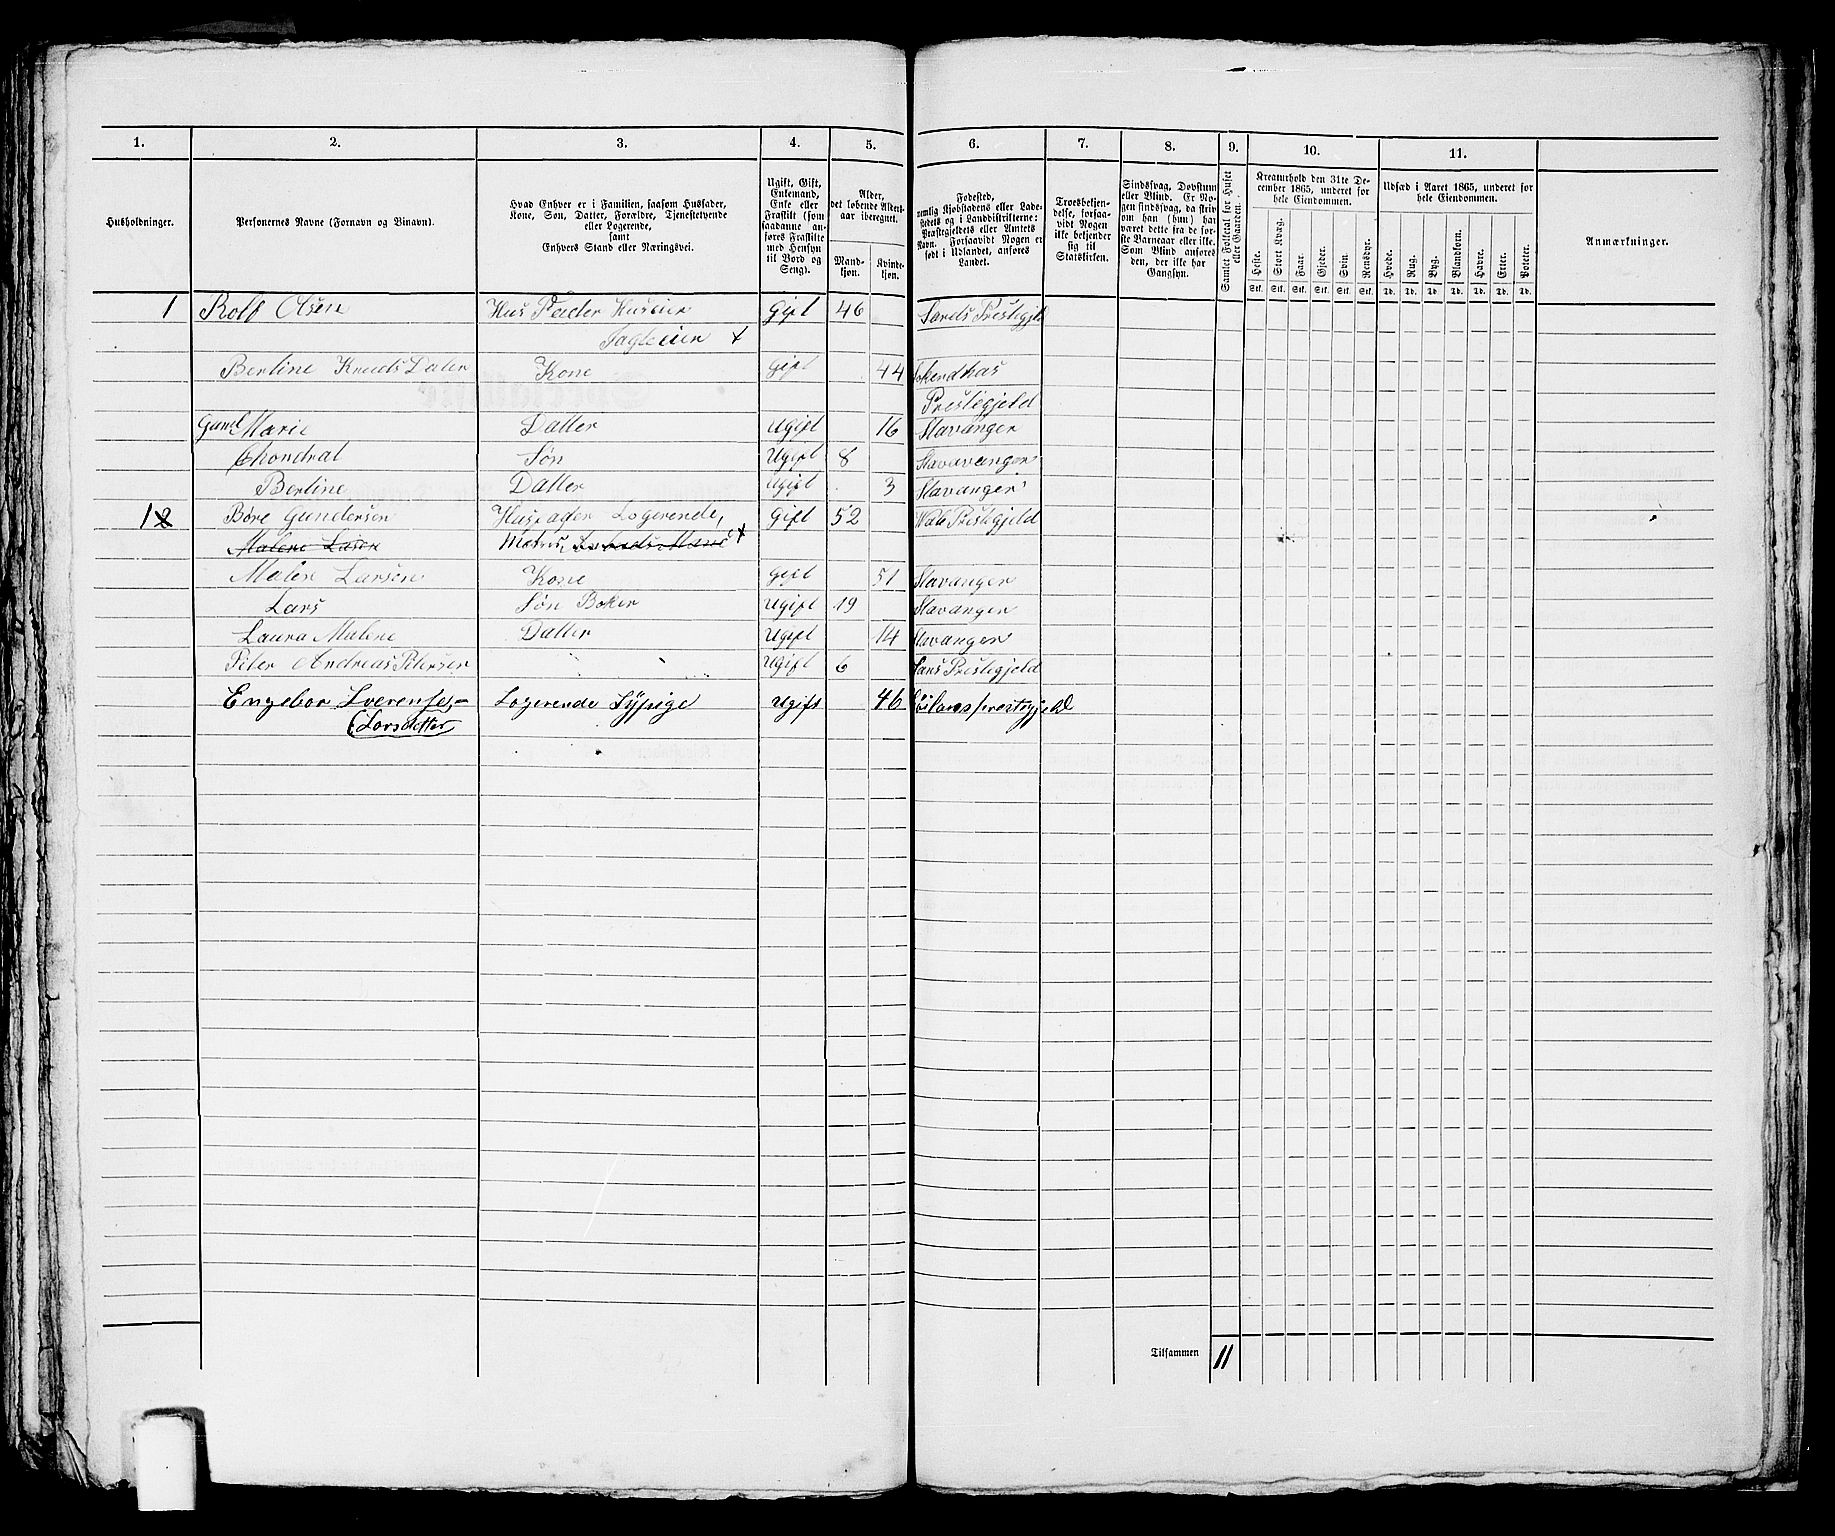 1. 2. 3. 4. 5. 6. 7. 8. 9. 10. 11.
Husholdninger.
Personernes Navne (Fornavn og Binavn).
Hvad Enhver er i Familien, saasom Husfader,
Kone, Søn, Datter, Forældre, Tjenestetyende
eller Logerende,
samt
Enhvers Stand eller Næringsvei.
Ugift, Gift,
Enkemand,
Enke eller
Fraskilt (som
saadanne an-
føres Fraskilte
med Hensyn
til Bord og
Seng).
Alder,
det løbende Alders-
aar iberegnet.
Mand-
kjøn.
Kvinde-
kjøn.
Fødested,
nemlig Kjøbstadens eller Lade-
stedets og i Landdistrikterne:
Præstegjeldets eller Amtets
Navn. Forsaavidt Nogen er
født i Udlandet, anføres
Landet.
Troesbekjen-
delse, forsaa-
vidt Nogen
ikke bekjender
sig til
Statskirken.
Sindssvag, Døvstum
eller Blind. Er No-
gen sindssvag, da skriv
om han (hun) har
været dette fra de før-
ste Barneaar eller ikke.
Som Blind anføres
den, der ikke har
Gangsyn.
Samlet Folketal for Huset
eller Gaarden.
Kreaturhold den 31te De-
cember 1865, underet for
hele Eiendommen.
Heste. Stort Kvæg. Faar. Gjeder. Svin. Rensdyr.
Stk. Stk. Stk. Stk. Stk. Stk.
Udsæd i Aaret 1865, underet for
hele Eiendommen.
Hvede. Rug. Byg. Blandkorn. Havre. Erter. Poteter.
Td. Td. Td. Td. Td. Td. Td.
Anmærkninger.
1 Rolf Olsen Hus Fader Huseier Gift 46 Prestegjeld
Berline Knuds Dater Kone Gift 44
Prestegjeld
Marie Datter Ugift 16 Stavanger
Søn Ugift 8 Stavavanger
Berline Datter Ugift 3 Stavanger
12 Børe Gundersen Husfader Logerende, Gift 52 Prestegjeld
Malene Larsen
Malen Larsen Kone Gift 51 Stavanger
Lars Søn Ugift 19 Stavanger
Laura Malene Datter Ugift 14 Stavanger
Peter Andreas Petersen Ugift 6 Prestegjeld
Engebor Logerende Sypige Ugift 46
(Larsdatter
Tilsammen 11